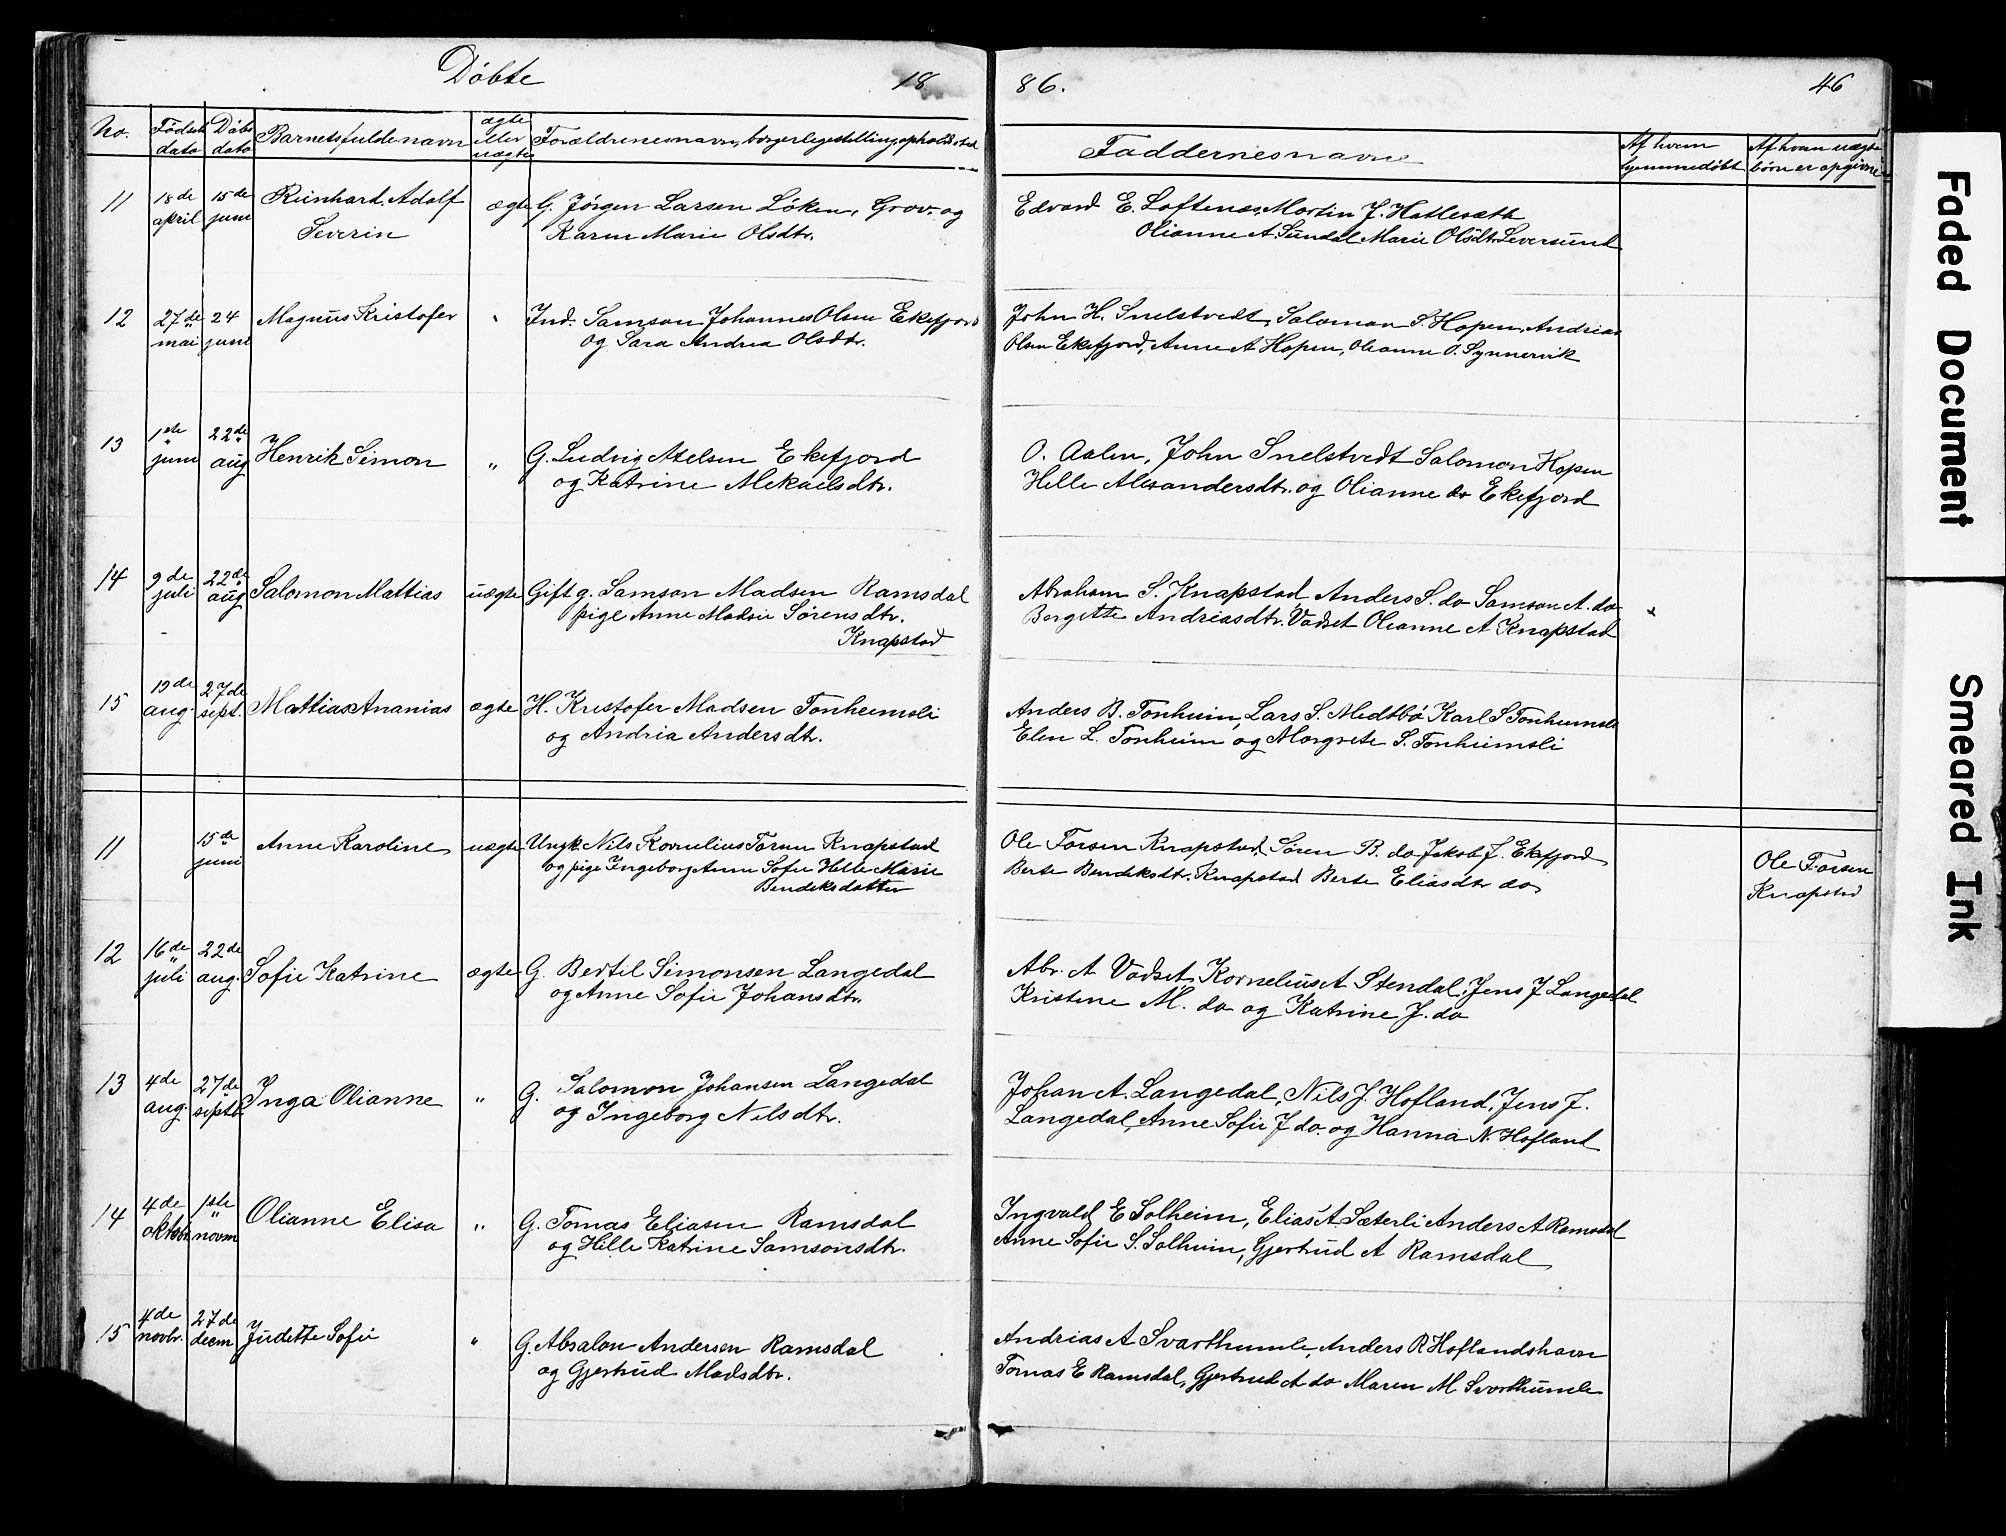 Døbte 18 86. 46
No. Fødsels dato Døbs dato Barnets fulde navn ægte eller uægte Forældrenes navn, borgerlige stilling, opholdssted Faddernes navne Af hvem hjemmedøbt Af hvem uægte børn er opgivne
11 18de april 15de juni Reinhart Adolf ægte G. Jørgen Larsen Løken, Grov. og Edvard E. Loftenes, Martin J. Hatlesæth
Severin Karen Marie Olsdtr. Olianne A. Sundal Marie Olsdtr. Leversund
12 27de mai 24 juni Magnus Kristofer " Ind. Samson Johannes Olsen Ekefjord John H. Snelstvedt, Salomon S. Hopen, Andrias
og Sara Andrea Olsdtr. Olsen Ekefjord, Anne A Hopen, Olianne O. Synnervik
13 1ste juni 22de aug Henrik Simon " G. Ludvig Atelsen Ekefjord O. Aalen, John Snelstvedt Salomon Hopen
og Katrine Mekaelsdtr. Helle Alexandersdtr. og Olianne do Ekefjord
14 9de juli 22de aug Salomon Mattias uægte Gift g. Samson Madsen Ramsdal Abraham S. Knapstad, Anders S. do Samson A. do
pige Anne Marie Sørensdtr. Bergitte Andriasdtr. Vadset Olianne A Knapstad
Knapstad
15 19de aug. 27de sept. Mattias Ananias ægte H. Kristofer Madsen Tonheimsli Anders B. Tonheim, Lars S. Midtbø Karl S Tonheimsli
og Andria Andersdtr. Elen L. Tonheim og Margrete S. Tonheimsli
11 15de juni Anne Karoline uægte Ungk. Nils Kornelius Torsen Knapstad Ole Torsen Knapstad, Søren B. do Jakob J. Ekefjord Ole Torsen
og pige Ingeborg Anne Sofie Helle Marie Berte Bendeksdtr. Knapstad Berte Eliasdtr do Knapstad
Bendeksdatter
12 16de juli 22de aug. Sofie Katrine ægte G. Bertil Simonsen Langedal Abr. A Vadset, Kornelius A Stendal, Jens J Langedal
og Anne Sofie Johansdtr. Kristine M. do og Katrine J. do
13 4de aug. 27de septb. Inga Olianne " G. Salomon Johansen Langedal Johan A. Langedal, Nils J. Hofland, Jens J.
og Ingeborg Nilsdtr. Langedal, Anne Sofie J do. og Hanna N. Hofland
14 4de oktobr. 1ste novm Olianne Elisa " G. Tomas Eliasen Ramsdal Ingvald E Solheim, Elias A. Sæterli Anders A Ramsdal
og Hille Katrine Samsonsdtr. Anne Sofie S. Solheim, Gjertrud A Ramsdal
15 4de novbr. 27de decm Judette Sofie " G. Absalon Andersen Ramsdal Andrias A Svarthumle, Anders R Hoflandshavn
og Gjertrud Madsdtr. Tomas E Ramsdal, Gjertrud A do Maren M Svarthumle
Faded Document
Smeared Ink